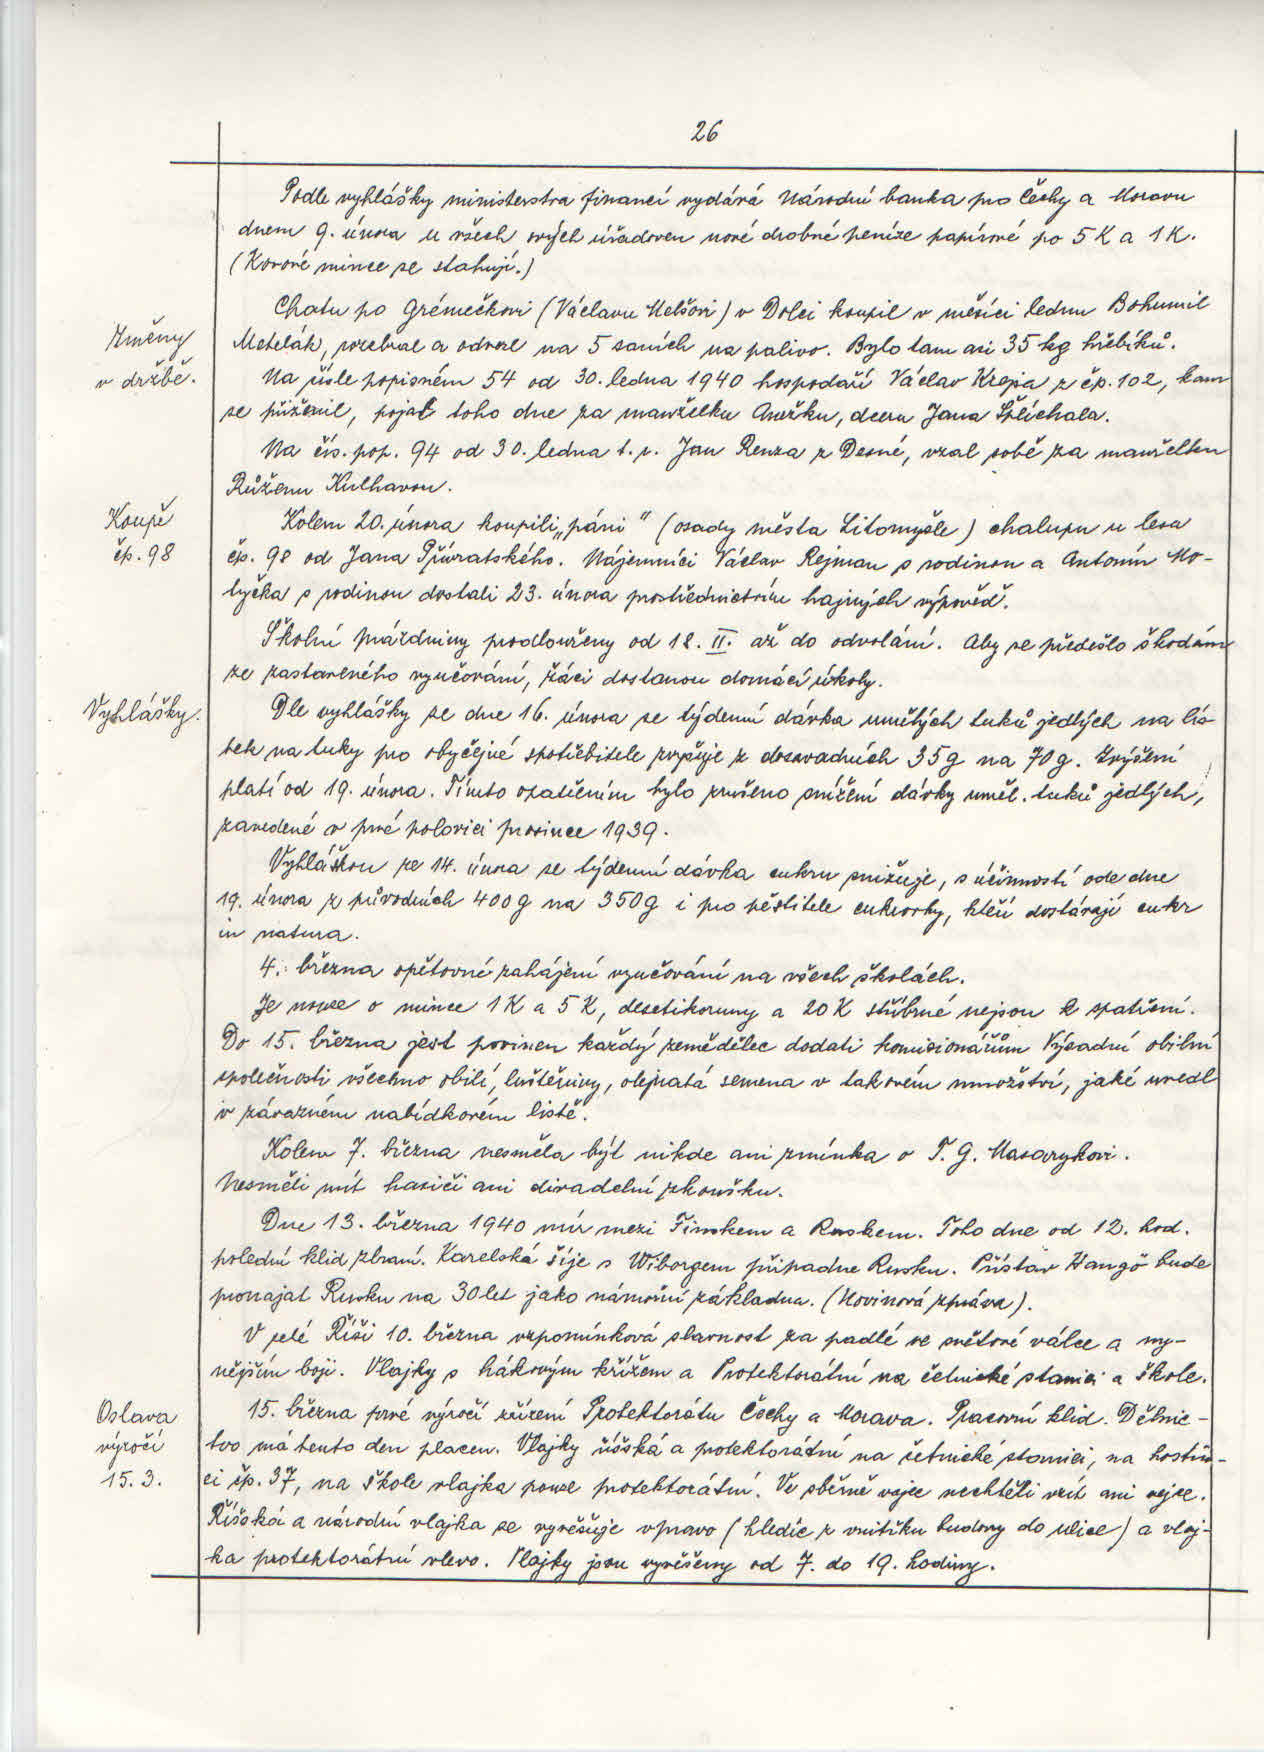 26
Podle vyhlášky ministerstva financí vydává Národní banka pro Čechy a Moravu
dnem 9. února u všech svých úřadoven nové drobné peníze papírové po 5 K a 1 K.
(Kovové mince se stahují.)
Chatu po Grémečkovi (Václavu Melšovi) v Dolci koupil v měsíci lednu Bohumil
Změny
Metelák, rozebral a odvezl na 5 saních na palivo. Bylo tam asi 35 kg hřebíků.
v držbě.
Na čísle popisném 54 od 30. ledna 1940 hospodaří Václav Krejsa z čp. 102, kam
se přiženil, pojal toho dne za manželku Anežku, dceru Jana Šplíchala.
Na čís. pop. 94 od 30. ledna t. r. Jan Renza z Desné, vzal sobě za manželku
Růženu Kulhavou.
Koupě
čp. 98
Kolem 20. února koupili „páni" (osady města Litomyšle) chalupu u lesa
čp. 98 od Jana Přívratského. Nájemníci Václav Rejman s rodinou a Antonín Mo-
tyčka s rodinou dostali 23. února prostřednictvím hajných výpověď.
Školní prázdniny prodlouženy od 18. II. až do odvolání. Aby se předešlo škodám
ze zastaveného vyučování, žáci dostanou domácí úkoly.
Vyhlášky.
Dle vyhlášky ze dne 16. února se týdenní dávka umělých tuků jedlých na lís-
tek na tuky pro obyčejné spotřebitele zvyšuje z dosavadních 35 g na 70 g. Zvýšení
platí od 19. února. Tímto opatřením bylo zrušeno snížení dávky uměl. tuků jedlých,
zavedené v prvé polovici prosince 1939.
Vyhláškou ze 14. února se týdenní dávka cukru snižuje, s účinností ode dne
19. února z původních 400 g na 350 g i pro pěstitele cukrovky, kteří dostávají cukr
in natura.
4. března opětovné zahájení vyučování na všech školách.
Je nouze o mince 1 K a 5 K, desetikoruny a 20 K stříbrné nejsou k spatření.
Do 15. března jest povinen každý zemědělec dodati komisionářům Výsadní obilní
společnosti všechno obilí, luštěniny, olejnatá semena v takovém množství, jaké uvedl
v závazném nabídkovém listě.
Kolem 7. března nesměla být nikde ani zmínka o T. G. Masarykovi.
Nesměli mít hasiči ani divadelní zkoušku.
Dne 13. března 1940 mír mezi Finskem a Ruskem. Toho dne od 12. hod.
polední klid zbraní. Karelská šíje s Wiborgem připadne Rusku. Přístav Hangö bude
pronajat Rusku na 30 let jako námořní základna. (Novinová zpráva).
V celé Říši 10. března vzpomínková slavnost za padlé ve světové válce a ny-
nějším boji. Vlajky s hákovým křížem a Protektorátní na četnické stanici a škole.
Oslava
výročí
15. 3.
15. března prvé výročí zřízení Protektorátu Čechy a Morava. Pracovní klid. Dělnic-
tvo má tento den placen. Vlajky říšská a protektorátní na četnické stanici, na hostin-
ci čp. 37, na škole vlajka pouze protektorátní. Ve sběrně vajec nechtěli vzít ani vejce.
Říšská a národní vlajka se vyvěšuje vpravo (hledíc z vnitřku budovy do ulice) a vlaj-
ka protektorátní vlevo. Vlajky jsou vyvěšeny od 7. do 19. hodiny.